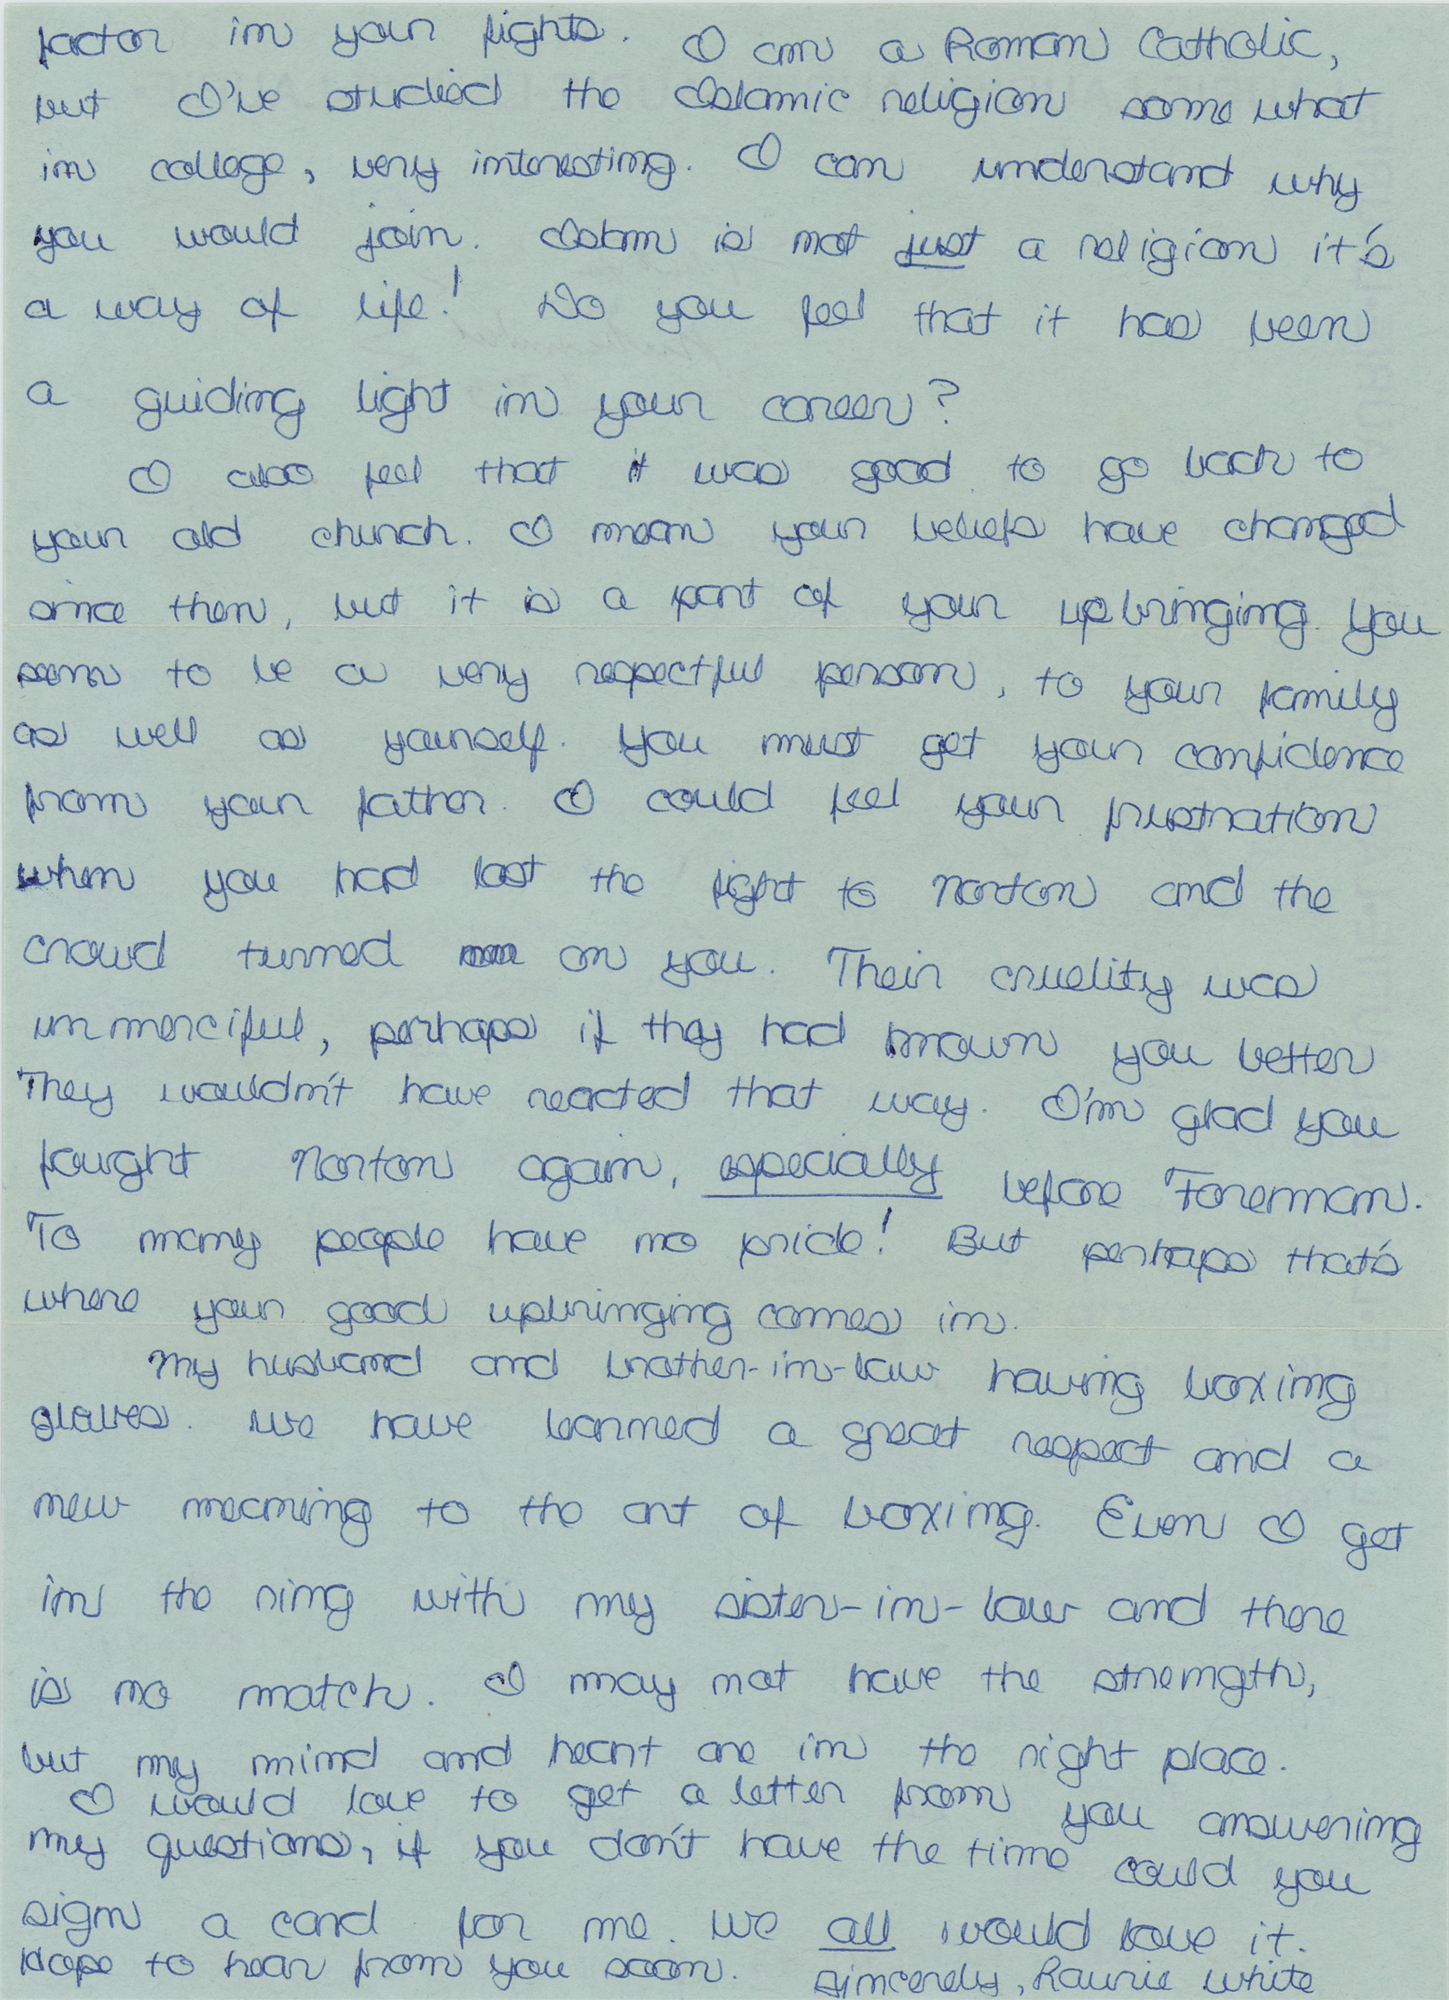 factor in your fights. I am a Roman Catholic,
but I've studied the Islamic religion some what
in college, very interesting. I can understand why
you would join. Islam is not just a religion it's
a way of life! Do you feel that it has been
a guiding light in your career?
I also feel that it was good to go back to
your old church. I mean your beliefs have changed
since then, but it is a part of your upbringing. You
seem to be a very respectful person, to your family
as well as yourself. You must get your confidence
from your father. I could feel your frustration
when you had lost the fight to Norton and the
crowd turned on you. Their cruelity was
unmerciful, perhaps if they had known you better
They wouldn't have reacted that way. I'm glad you
fought Norton again, especially before Foreman.
To many people have no pride! But perhaps that's
where your good upbringing comes in.
My husband and brother-in-law having boxing
gloves. We have learned a great respect and a
new meaning to the art of boxing. Even I get
in the ring with my sister-in-law and there
is no match. I may not have the strength,
but my mind and heart are in the right place.
I would love to get a letter from you answering
my questions, if you don't have the time could you
sign a card for me. We all would love it.
Hope to hear from you soon. Sincerely, Laurie White